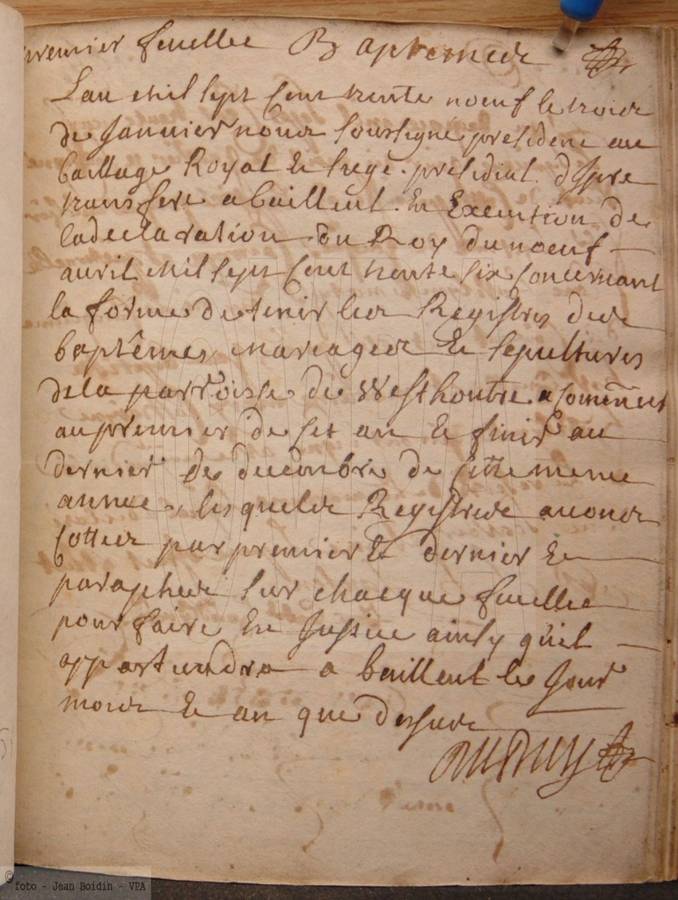 premier feuillee Baptemes
Lan mil sept cent trente noeuf le trois
de Janvier nous soussigné president au
baillage Royal et siege president d'Ipre
transferé a bailleul En Execution de
la declaration du Roy du noeuf
avril mil sept cent trente six concernant
la forme de tenir les Registres des
baptêmes mariages et sepultures
de la parroisse de Westhoutre a commencer
au premier de cet an et finir au
dernier de decembre de cette meme
année, lesquels Registres avons
cottez par premier et dernier et
paraphez sur chacque feuillee
pour faire En Justice ainsy qúil
appartiendra a bailleul les Jour
mois et an que dessus
©foto - Jean Boidin - VPA